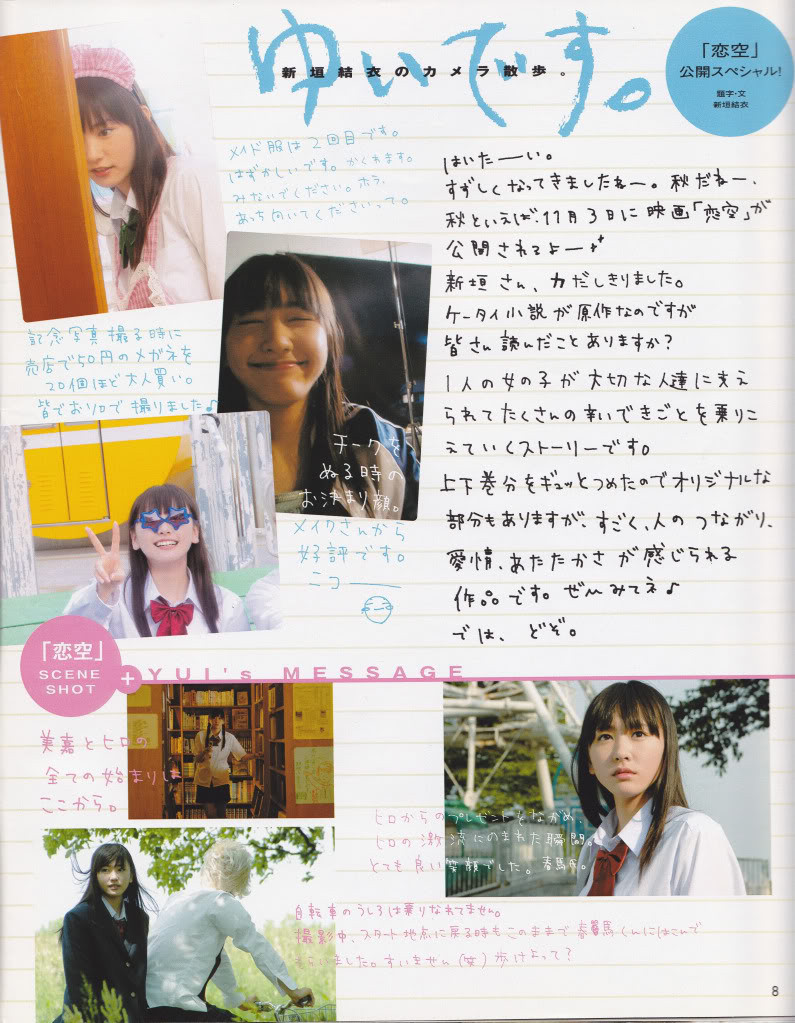 ゆいです。
新垣結衣のカメラ散歩。
「恋空」
公開スペシャル!
題字・文
新垣結衣
メイド服は2回目です。
はずかしいです。かくれます。
みないでください。ホラ、
あっち向いてくださいって。
はいたーい。
すずしくなってきましたねー。秋だねー、
秋といえば、11月3日に映画「恋空」が
公開されるよー
新垣さん、力だしきりました。
ケータイ小説が原作なのですが
皆さん読んだことありますか?
1人の女の子が大切な人達に支え
られてたくさんの辛いできごとを乗りこ
えていくストーリーです。
上下巻分をギュッとつめたのでオリジナルな
部分もありますが、すごく、人のつながり、
愛情、あたたかさが感じられる
作品です。ぜひみてネ♪
では、どぞ。
記念写真撮る時に
売店で50円のメガネを
20個ほど大人買い。
皆でおソロで撮りました♪
チークを
ぬる時の
お決まり顔。
メイクさんから
好評です。
ニコ——
「恋空」
SCENE
SHOT
+
YUI's MESSAGE
美嘉とヒロの
全ての始まりは
ここから。
ヒロからのプレゼントをながめ、
ヒロの激流にのまれた瞬間。
とても良い笑顔でした。春馬氏。
自転車のうしろは乗りなれてません。
撮影中、スタート地点に戻る時もこのままで春馬くんにはこんで
もらいました。すいません(笑)歩けよって?
8